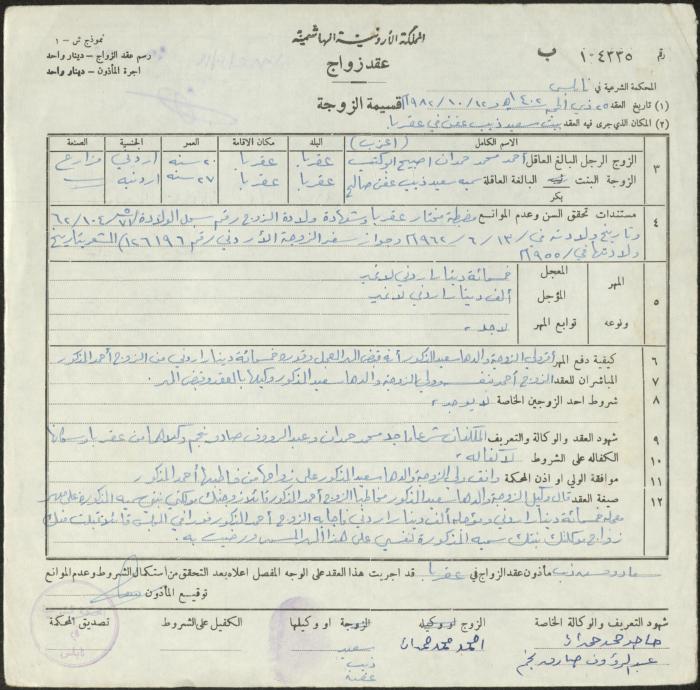 المملكة الأردنية الهاشمية
نموذج ش - ١
رسم عقد الزواج - دينار واحد
اجرة المأذون - دينار واحد
عقد زواج
رقم ١٠٤٣٣٥ ب
المحكمة الشرعية في نابلس
(١) تاريخ العقد ٢٥ ذي الحجة ١٤٠٢هـ ١٢/١٠/١٩٨٢م
قسيمة الزوجة
(٢) المكان الذي جرى فيه العقد بيت سعيد ذيب في عقربا
الاسم الكامل (اعزب) البلد مكان الاقامة العمر الجنسية الصنعة
٣ الزوج الرجل البالغ العاقل أحمد محمد حمدان عقربا عقربا ٢٠ سنه اردني مزارع
الزوجة البنت البالغة العاقلة سميه سعيد ذيب عقربا عقربا ٢٧ سنه اردنيه
بكر
٤ مستندات تحقق السن وعدم الموانع مضبطة مختار عقربا وشهادة ولادة الزوج رقم سجل الولادة
وتاريخ ولادته في ١٣/٦/١٩٦٢م وجواز سفر الزوجة الأردني رقم ١٢٦١٩٦ المشعر بتاريخ
ولادتها في ١٩٥٥م
٥ المهر المعجل خمسمائة دينار اردني لا غير
المؤجل ألف دينار اردني لا غير
ونوعه توابع المهر لا يوجد
٦ كيفية دفع المهر أقر ولي الزوجة والدها سعيد المذكور أنه قبض المهر المعجل وقدره خمسمائة دينار اردني من الزوج أحمد المذكور
٧ المباشران للعقد الزوج أحمد بنفسه وولي الزوجة والدها سعيد المذكور وكيلها بالعقد وقبض المهر.
٨ شروط احد الزوجين الخاصة لا يوجد
٩ شهود العقد والوكالة والتعريف المكلفان شرعا ماجد محمد حمدان وعبد الرؤوف صادق نجم وكلاهما من عقربا وسكانها
١٠ الكفاله على الشروط لا كفاله
١١ موافقة الولي او اذن المحكة وافق ولي الزوجة والدها سعيد المذكور على زواجها من خاطبها أحمد المذكور
١٢ صفة العقد قال وكيل الزوجة والدها سعيد المذكور مخاطبا الزوج أحمد المذكور قائلا زوجتك موكلتي بنتي سميه المذكورة على مهر
معجله خمسمائة دينار اردني ومؤجله ألف دينار اردني فأجابه الزوج أحمد المذكور فورا في المجلس قائلا قبلت منك
زواج موكلتك بنتك سميه المذكورة لنفسي على هذا المهر المسمى ورضيت به.
مأذون عقد الزواج في عقربا قد اجريت هذا العقد على الوجه المفصل اعلاه بعد التحقق من استكمال الشروط وعدم الموانع
توقيع المأذون
شهود التعريف والوكالة الخاصة
الزوج او وكيله
الزوجة او وكيلها
الكفيل على الشروط
تصديق المحكة
ماجد محمد حمدان
عبد الرؤوف صادق نجم
احمد محمد حمدان
سعيد
ذيب
نابلس